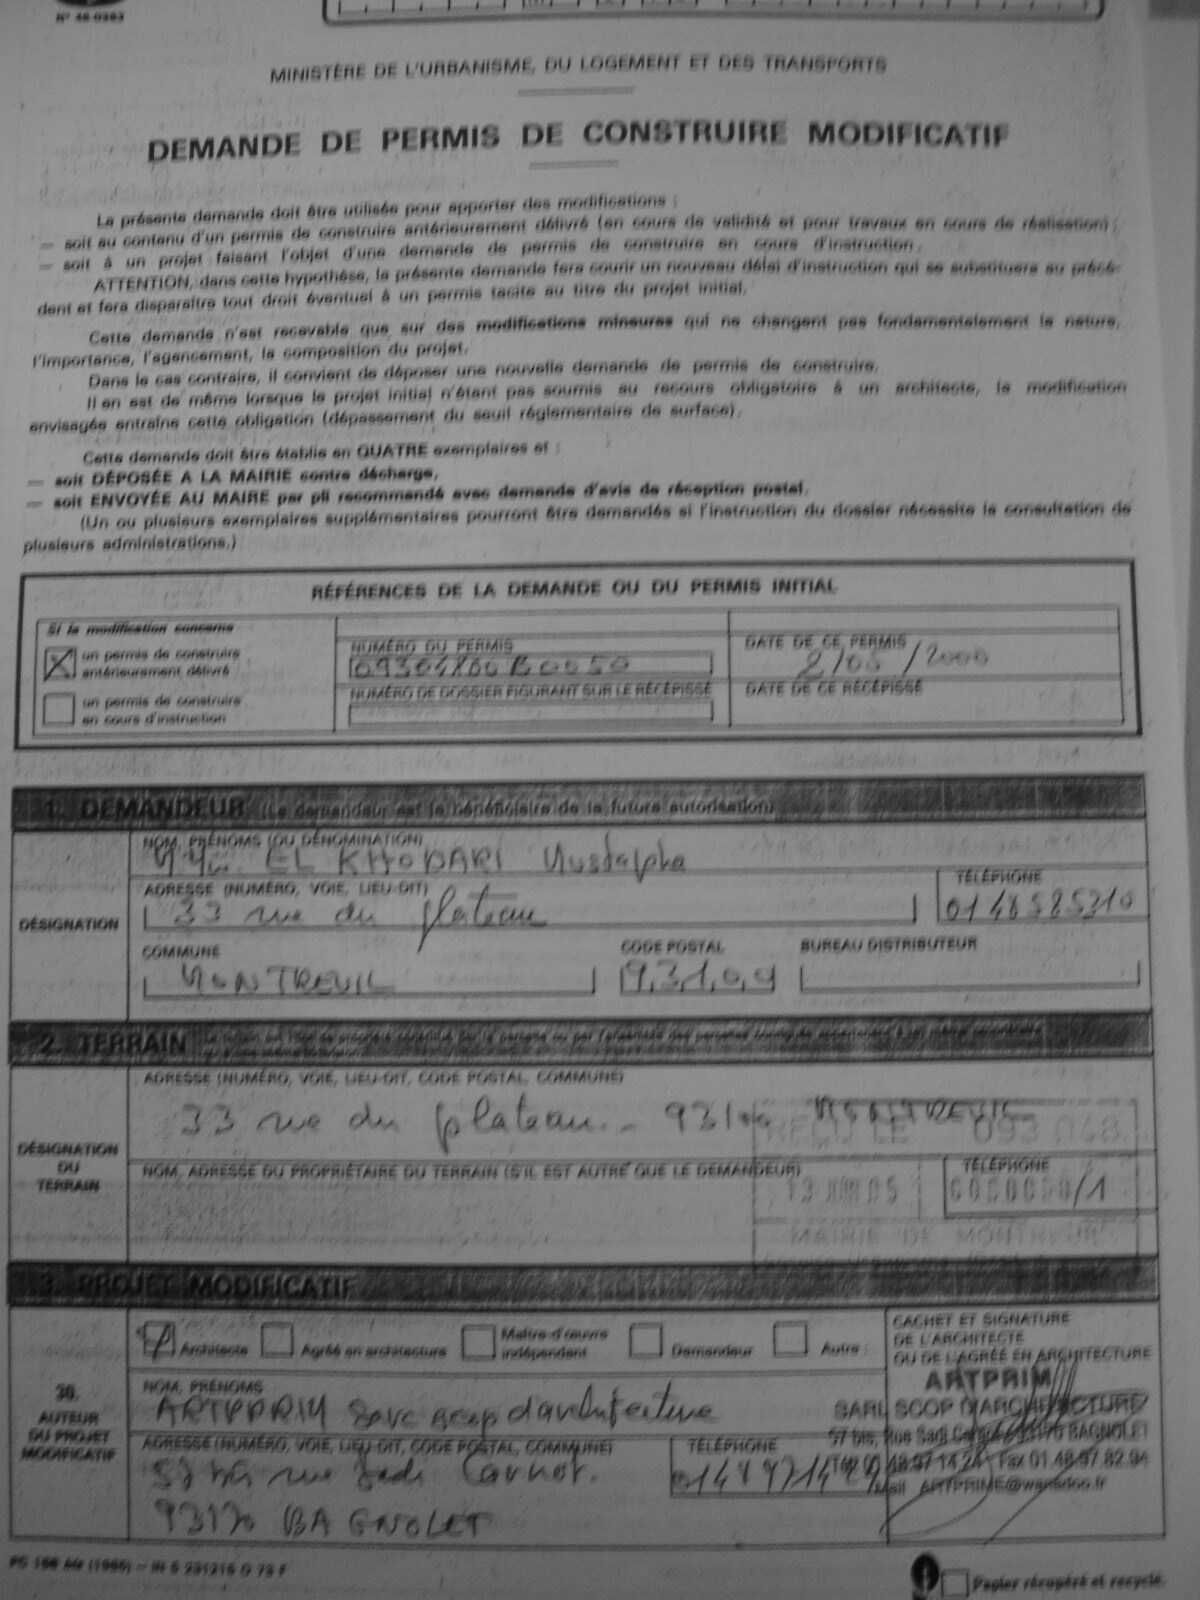 N° 46 0383
MINISTÈRE DE L'URBANISME, DU LOGEMENT ET DES TRANSPORTS
DEMANDE DE PERMIS DE CONSTRUIRE MODIFICATIF
La présente demande doit être utilisée pour apporter des modifications :
— soit au contenu d'un permis de construire antérieurement délivré (en cours de validité et pour travaux en cours de réalisation) ;
— soit à un projet faisant l'objet d'une demande de permis de construire en cours d'instruction.
ATTENTION, dans cette hypothèse, la présente demande fera courir un nouveau délai d'instruction qui se substituera au précé-
dent et fera disparaître tout droit éventuel à un permis tacite au titre du projet initial.
Cette demande n'est recevable que sur des modifications mineures qui ne changent pas fondamentalement la nature,
l'importance, l'agencement, la composition du projet.
Dans le cas contraire, il convient de déposer une nouvelle demande de permis de construire.
Il en est de même lorsque le projet initial n'étant pas soumis au recours obligatoire à un architecte, la modification
envisagée entraîne cette obligation (dépassement du seuil réglementaire de surface).
Cette demande doit être établie en QUATRE exemplaires et :
— soit DÉPOSÉE A LA MAIRIE contre décharge,
— soit ENVOYÉE AU MAIRE par pli recommandé avec demande d'avis de réception postal.
(Un ou plusieurs exemplaires supplémentaires pourront être demandés si l'instruction du dossier nécessite la consultation de
plusieurs administrations.)
RÉFÉRENCES DE LA DEMANDE OU DU PERMIS INITIAL
Si la modification concerne
un permis de construire
antérieurement délivré
NUMÉRO DU PERMIS
09304800B0050
DATE DE CE PERMIS
2/05/2000
un permis de construire
en cours d'instruction
NUMÉRO DE DOSSIER FIGURANT SUR LE RÉCÉPISSÉ
DATE DE CE RÉCÉPISSÉ
1. DEMANDEUR (Le demandeur est le bénéficiaire de la future autorisation)
DÉSIGNATION
NOM, PRÉNOMS (OU DÉNOMINATION)
EL KHODARI Mustapha
ADRESSE (NUMÉRO, VOIE, LIEU-DIT)
33 rue du plateau
TÉLÉPHONE
0148585310
COMMUNE
MONTREUIL
CODE POSTAL
93100
BUREAU DISTRIBUTEUR
2. TERRAIN
DÉSIGNATION
DU
TERRAIN
ADRESSE (NUMÉRO, VOIE, LIEU-DIT, CODE POSTAL, COMMUNE)
33 rue du plateau - 93100 MONTREUIL
REÇU LE 093 048
NOM, ADRESSE DU PROPRIÉTAIRE DU TERRAIN (S'IL EST AUTRE QUE LE DEMANDEUR)
TÉLÉPHONE
13 JUIN 05
MAIRIE DE MONTREUIL
3. PROJET MODIFICATIF
30.
AUTEUR
DU PROJET
MODIFICATIF
Architecte
Agréé en architecture
Maître d'œuvre
indépendant
Demandeur
Autre :
CACHET ET SIGNATURE
DE L'ARCHITECTE
OU DE L'AGRÉÉ EN ARCHITECTURE
NOM, PRÉNOMS
ARTPRIM sarl scop d'architecture
ADRESSE (NUMÉRO, VOIE, LIEU-DIT, CODE POSTAL, COMMUNE)
57 bis rue Sadi Carnot.
93170 BAGNOLET
TÉLÉPHONE
0148971424
ARTPRIM
SARL SCOP D'ARCHITECTURE
57 bis, Rue Sadi Carnot 93170 BAGNOLET
Tél 01 48.97 14.24 Fax 01.48.97.82.94
Mail ARTPRIME@wanadoo.fr
Papier récupéré et recyclé.